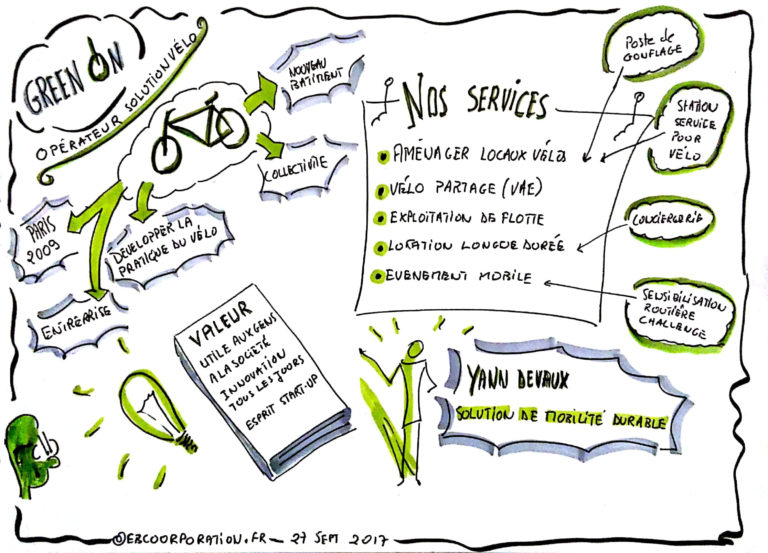 GREEN ON
OPÉRATEUR SOLUTION VÉLO
NOUVEAU
BÂTIMENT
COLLECTIVITE
PARIS
2009
DEVELOPPER LA
PRATIQUE DU VÉLO
ENTREPRISE
NOS SERVICES
AMÉNAGER LOCAUX VÉLOS
VÉLO PARTAGE (VAE)
EXPLOITATION DE FLOTTE
LOCATION LONGUE DURÉE
EVENEMENT MOBILE
Poste de
GONFLAGE
STATION
SERVICE
POUR
VÉLO
CONCIERGERIE
SENSIBILISATION
ROUTIÈRE
CHALLENGE
VALEUR
UTILE AUX GENS
A LA SOCIÉTÉ
INNOVATION
TOUS LES JOURS
ESPRIT START-UP
YANN DEVAUX
SOLUTION DE MOBILITÉ DURABLE
@EBCOORPORATION.FR — 27 SEPT 2017